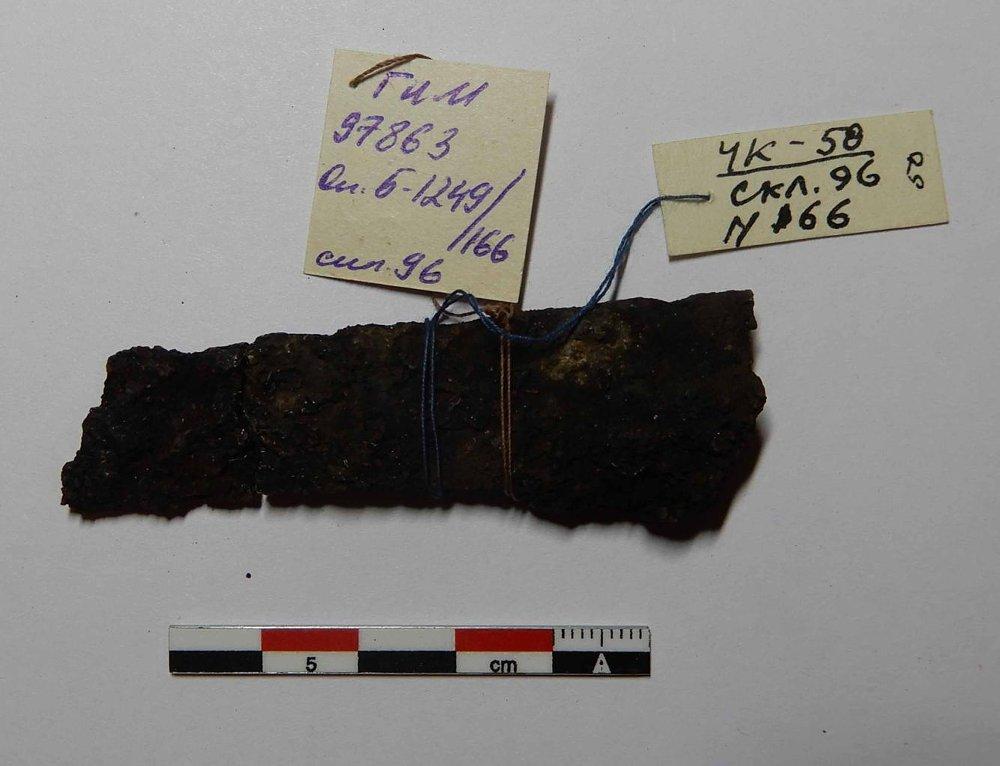 ГИМ
97863
Оп. Б-1249/
/166
скл. 96
ЧК-58
скл. 96
N 166
5 cm